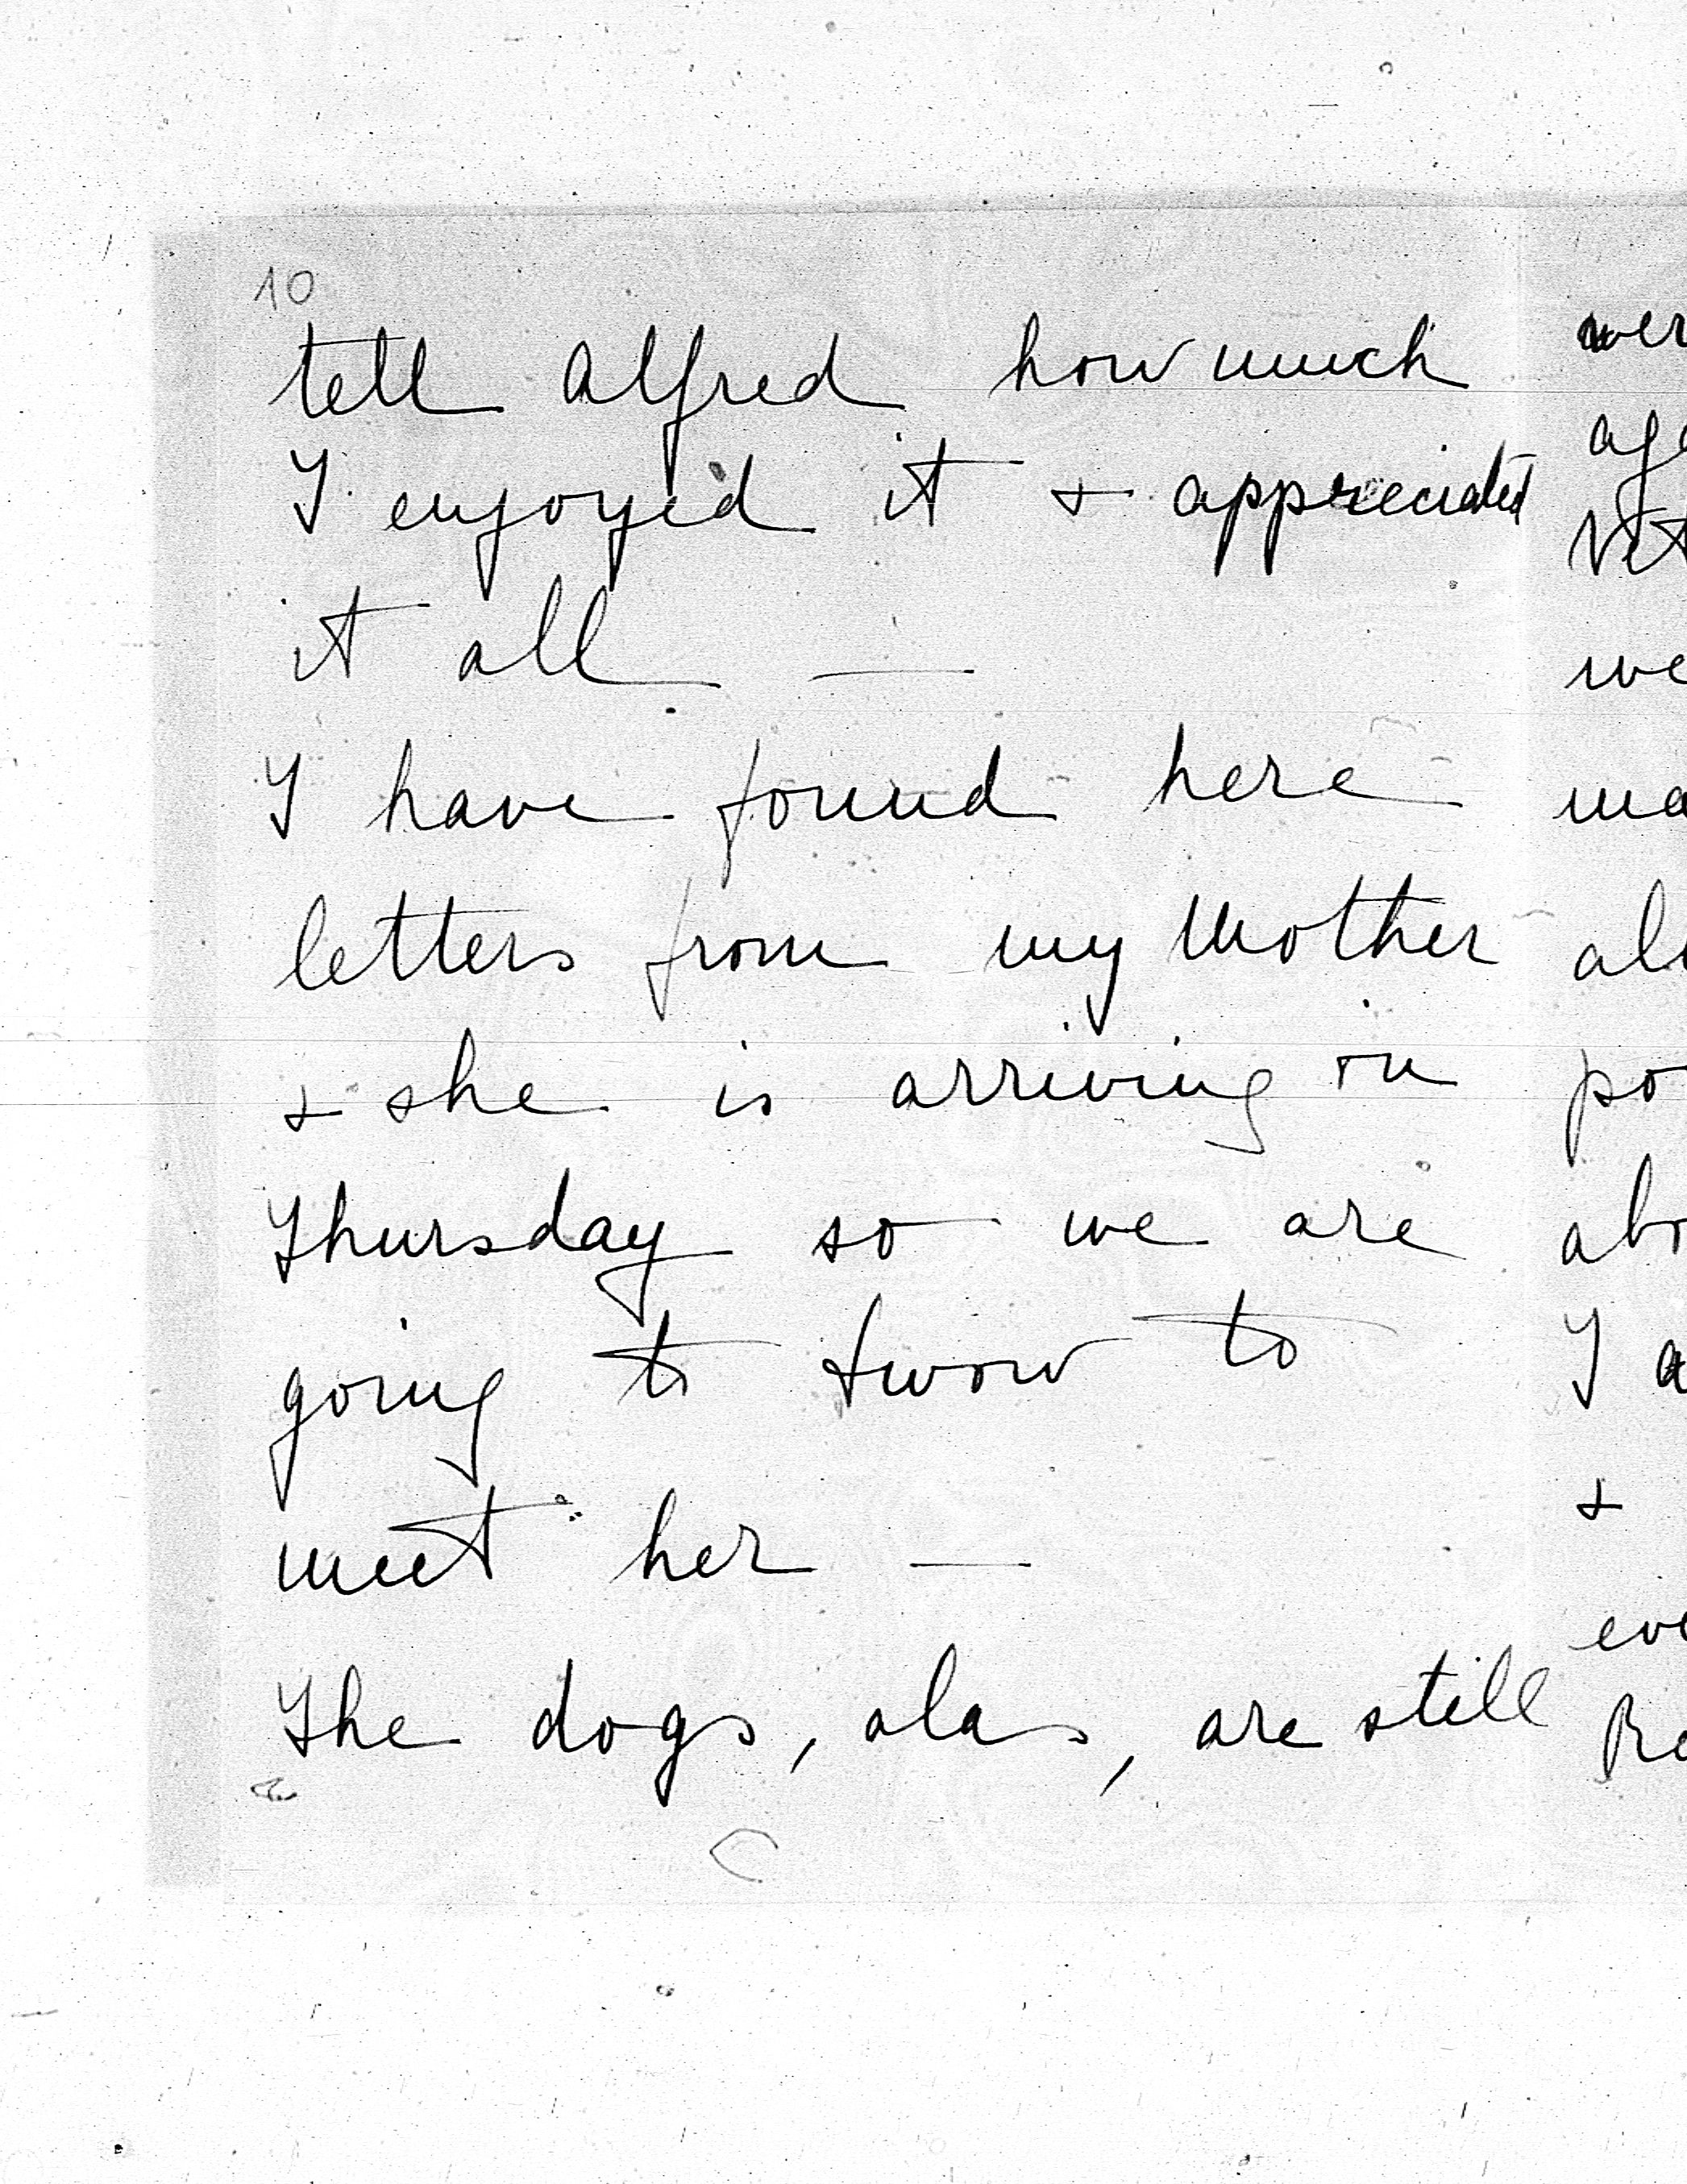 10
tell Alfred how much
I enjoyed it + appreciated
it all —
I have found here
letters from my Mother
+ she is arriving on
Thursday so we are
going to Lwow to
meet her —
The dogs, alas, are still
wer
age
Vet
we
ma
als
po
abo
I a
+
eve
Re